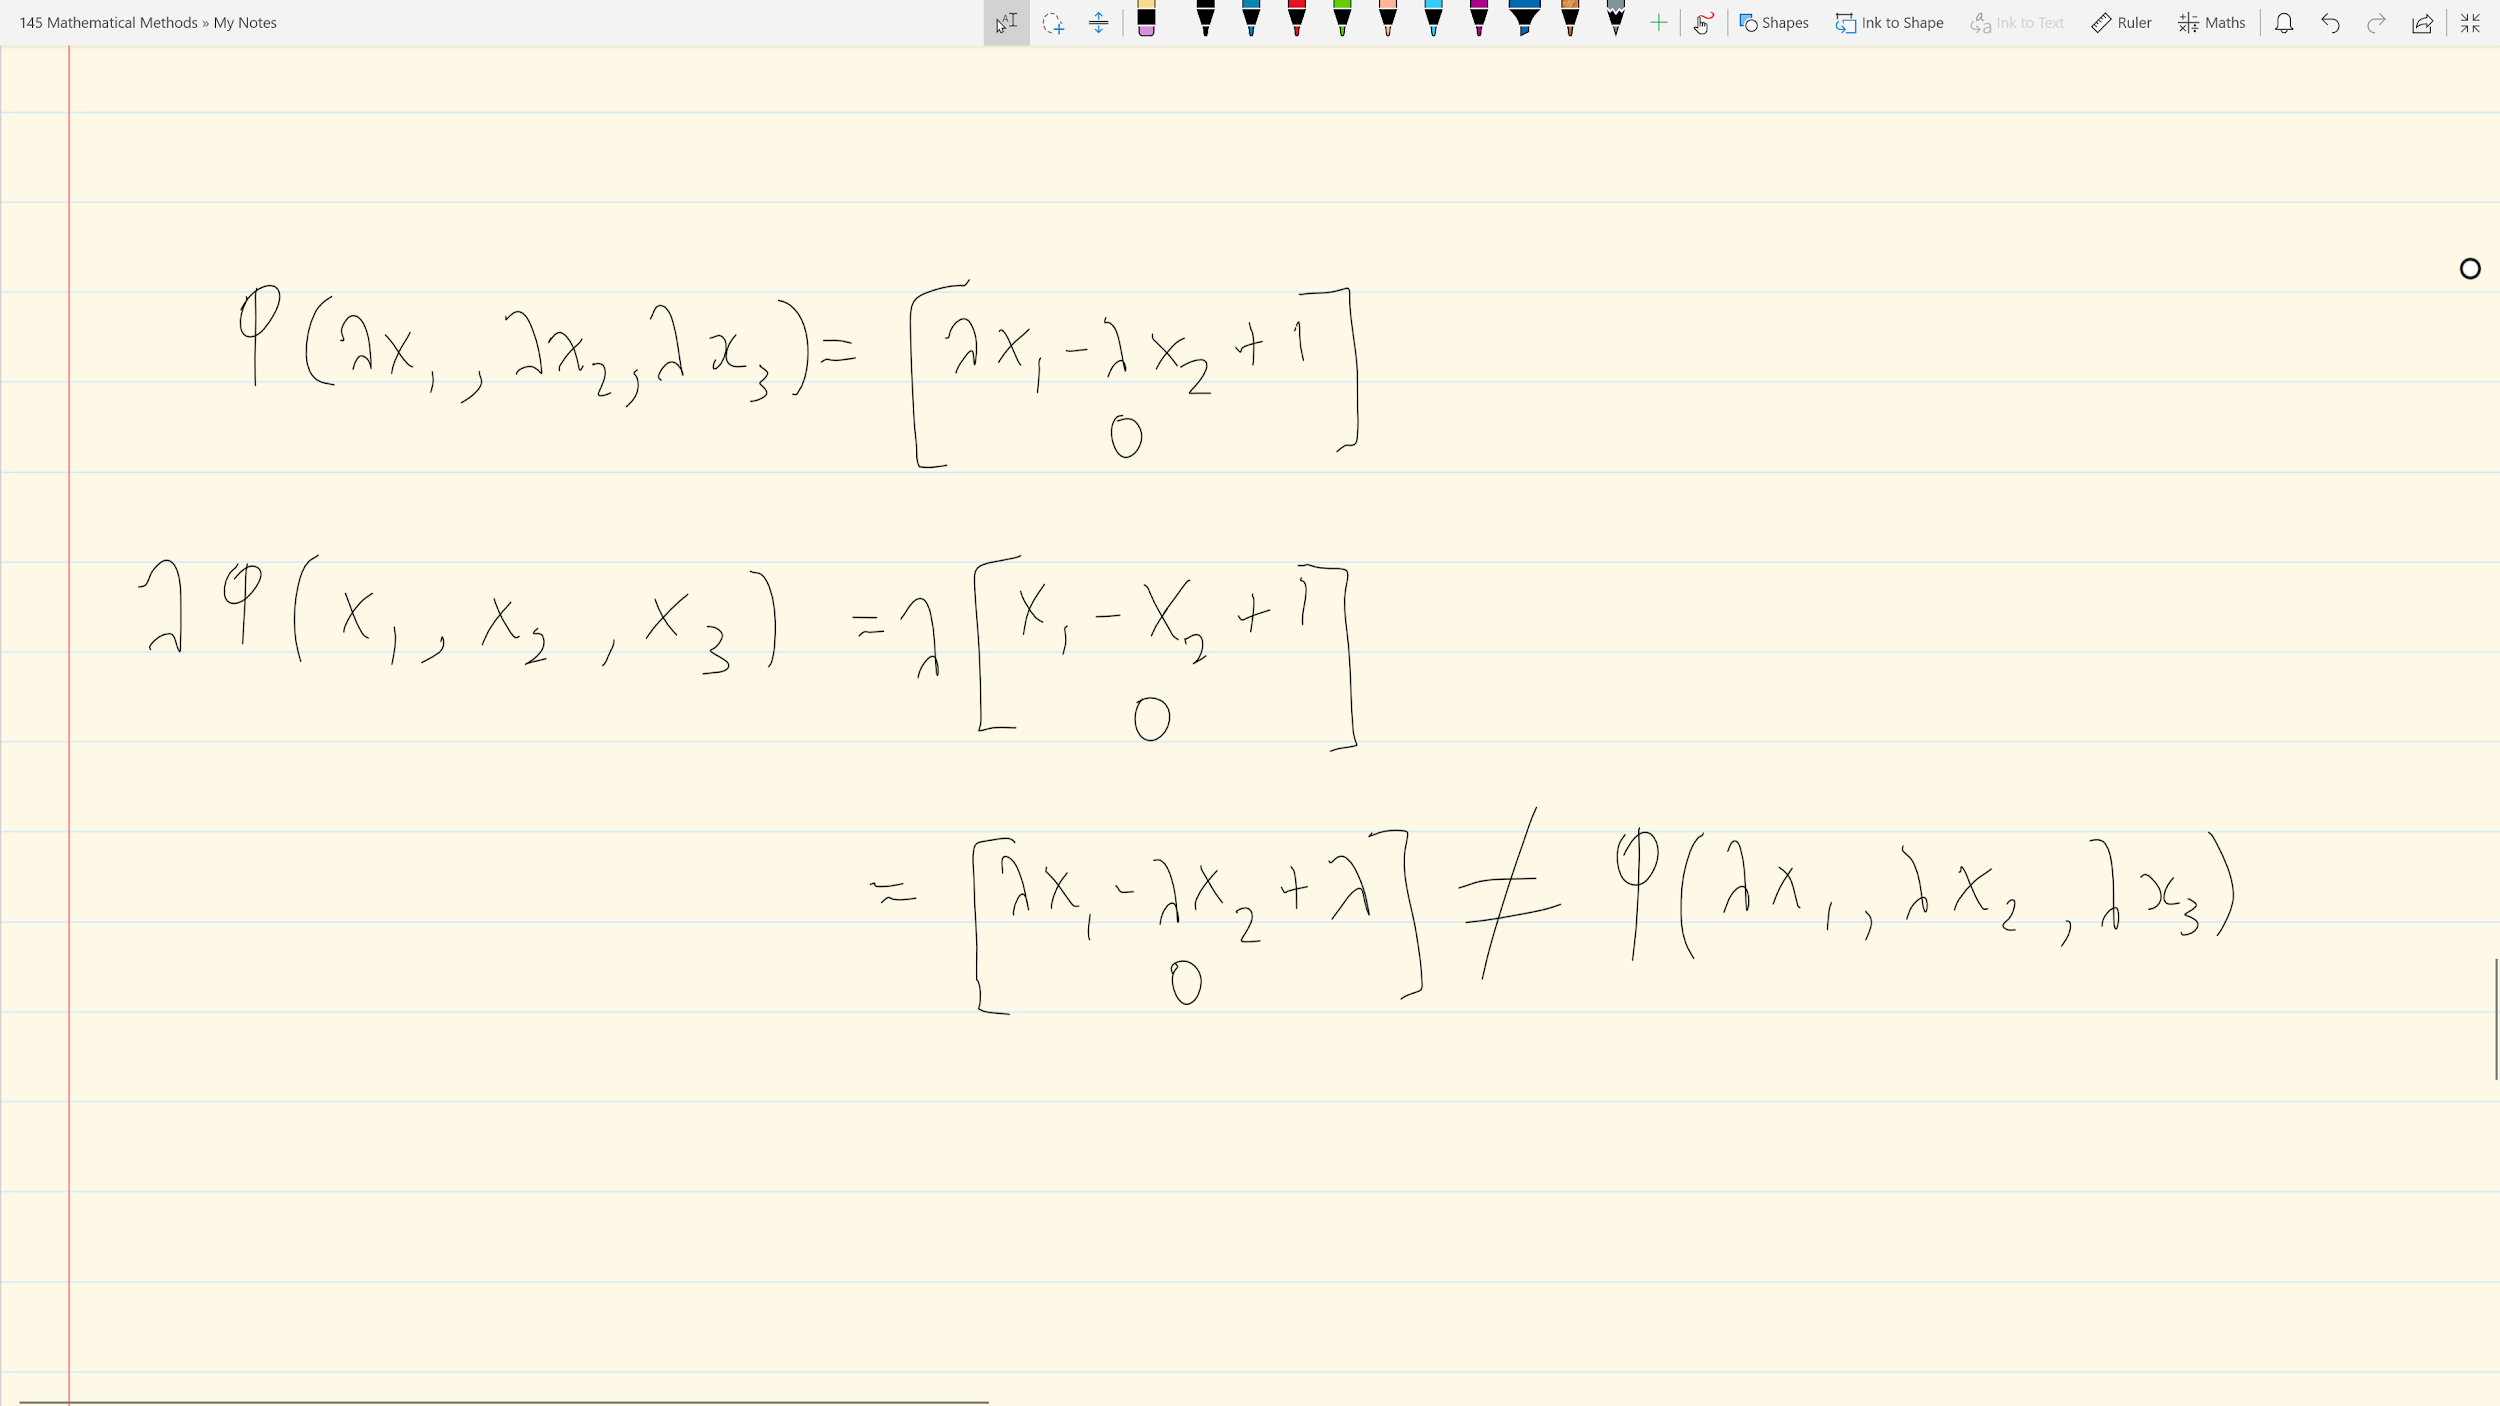 145 Mathematical Methods » My Notes Shapes Ink to Shape Ink to Text Ruler Maths
φ(λx₁, λx₂, λx₃) = [λx₁ - λx₂ + 1
0]
λφ(x₁, x₂, x₃) = λ[x₁ - x₂ + 1
0]
= [λx₁ - λx₂ + λ ≠ φ(λx₁, λx₂, λx₃)
0]